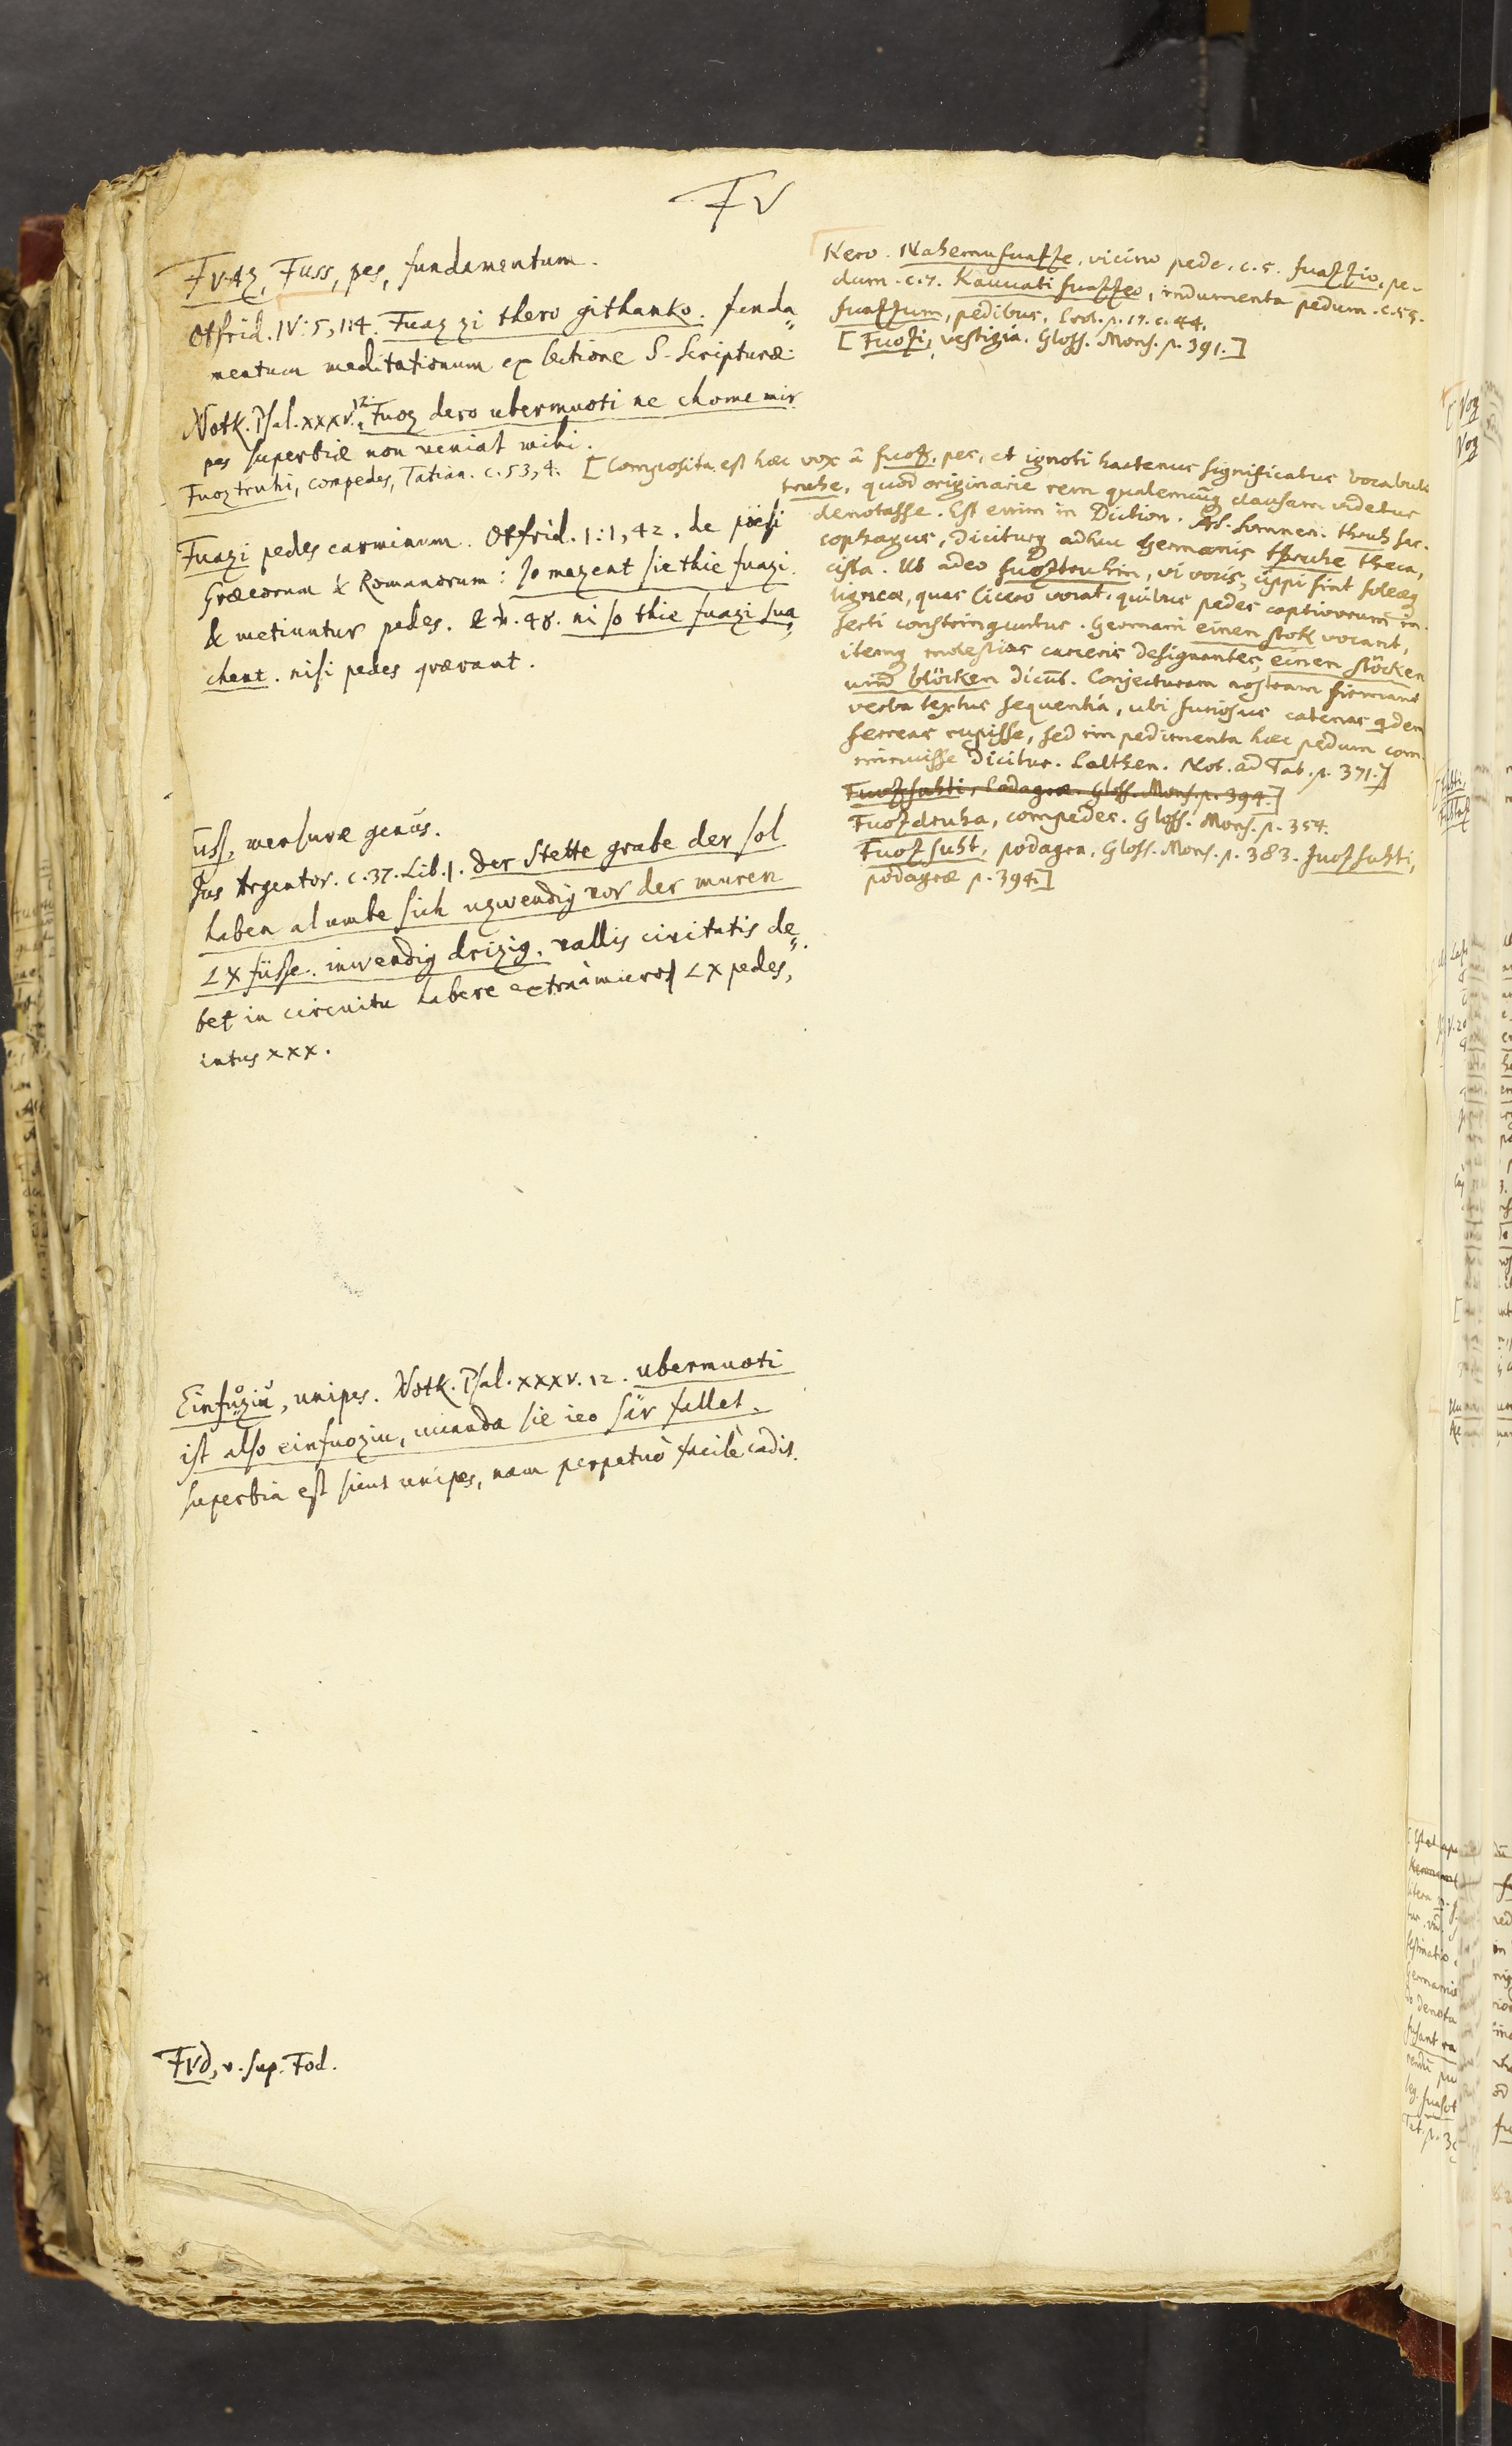 FV
FVAZ, Fuss, pes, fundamentum.
Otfrid. IV: 5, 114. Fuaz zi thero githanko. funda„
mentum meditationum ex lectione S. Scripturæ.
Notk. Psal. XXXV. 12. Fuoz dero ubermuoti ne chome mir
pes superbiæ non veniat mihi.
Fuoztruhi, compedes, Tatian. c. 53, 4.
Fuazi pedes carminum. Otfrid. I: 1, 42. de poësi
Græcorum & Romanorum: so mezent sie thie fuazi.
& metiuntur pedes. & v. 48. ni so thie fuazi sua„
chent. nisi pedes quærant.
Fuss, mensuræ genus.
Jus Argentor. c. 37. Lib. I. Der Stette grabe der sol
haben al umbe sich uzwendig vor der muren
LX füsse. inwendig drizig. vallis civitatis de„
bet in circuitu habere extra muros LX pedes,
intus XXX.
Einfůziu, unipes. Notk. Psal. XXXV. 12. ubermuoti
ist also einfuoziu, uuanda sie ieo sâr fallet.
superbia est sicut unipes, nam perpetuò facilè cadit.
FVD, v. sup. Fod.
Kero. Nahemu fuazze, vicino pede. c. 5. fuazzio, pe-
dum. c. 7. Kauuati fuazzeo, indumenta pedum. c. 55.
fuazzum, pedibus. Prol. p. 17. c. 44.
[Fuozi, vestigia. Gloss. Mons. p. 391.]
[Composita est hæc vox â fuoz, pes, et ignoti hactenus significatus vocabulo
truhe, quod originarie rem qualemcunq clausam videtur
denotasse. Est enim in Diction. AS. Somneri. thruh sar-
cophagus, diciturq adhuc Germanis thruhe theca,
cista. Ut adeo fuoztruhin, vi vocis, cippi sint soleæq
ligneæ, quas Cicero vocat, quibus pedes captivorum in-
serti constringuntur. Germani einen stok vocant,
itemq molestias carceris designantes, einen stöcken
und blöcken dicut. Conjecturam nostram firmant
verba textus sequentia, ubi furiosus catenas qdem
ferreas rupisse, sed impedimenta hæc pedum com-
minuisse dicitur. Palthen. Not. ad Tat. p. 371.]
Fuozsuhti, Podagræ. Gloss. Mons. p. 394.]
Fuozdruha, compedes. Gloss. Mons. p. 354.
Fuozsuht, podagra, Gloss. Mons. p. 383. Fuozsuhti,
podagræ p. 394.]